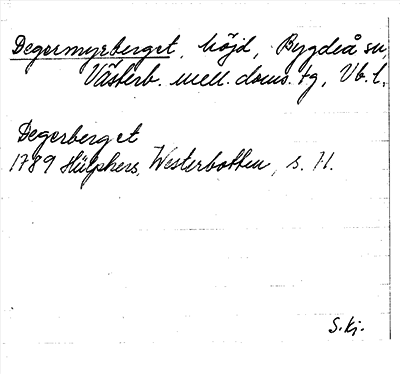 Degermyrberget, höjd, Bygdeå sn,
Västerb. mell. doms. tg, Vb. l.
Degerberget
1789 Hülphers, Westerbotten, s. 71.
S. Kj.